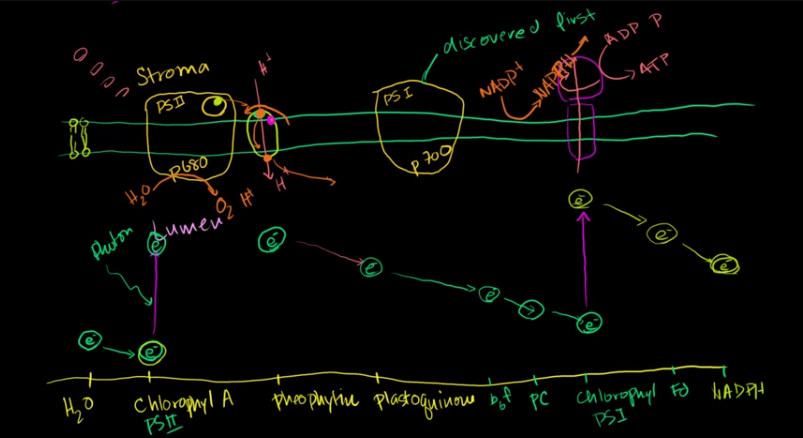 discovered first
ADP P
ATP
NADP+
NADPH
H+
Stroma
PSII
PSI
P680
P700
H2O
O2
H+
H+
Lumen
Photon
e-
e-
e-
e-
e-
e-
e-
e-
e-
e-
e-
H2O
Chlorophyl A
PSII
Pheophytin
Plastoquinone
b6f
PC
Chlorophyl
PSI
Fd
NADPH